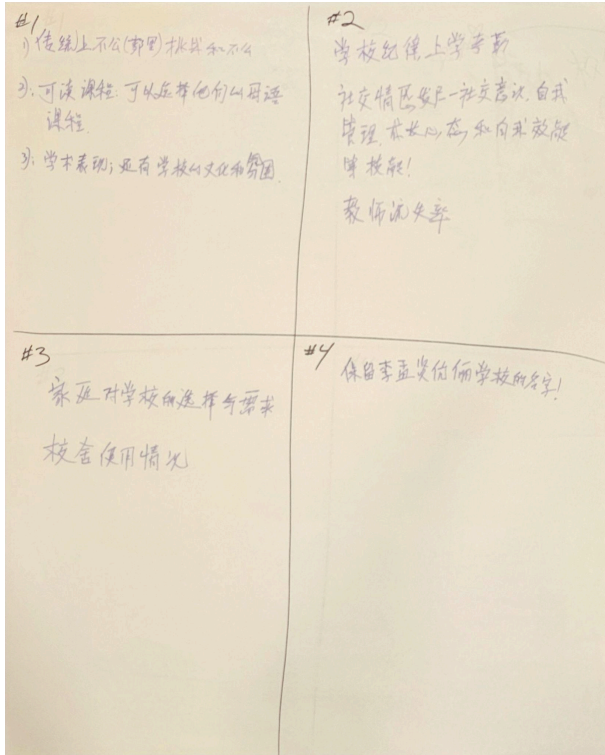 #1
1) 传统上不公(邻里)挑战和不公
2): 可读课程: 可以选择他们的母语
课程
3): 学术表现; 还有学校的文化和氛围.
#2
学校纪律上学考勤
社交情感发展—社交意识.自我
管理.成长心态,和自我效能
等技能!
教师流失率
#3
家庭对学校的选择与需求
校舍使用情况
#4
保留李孟贤的俩学校的名字!